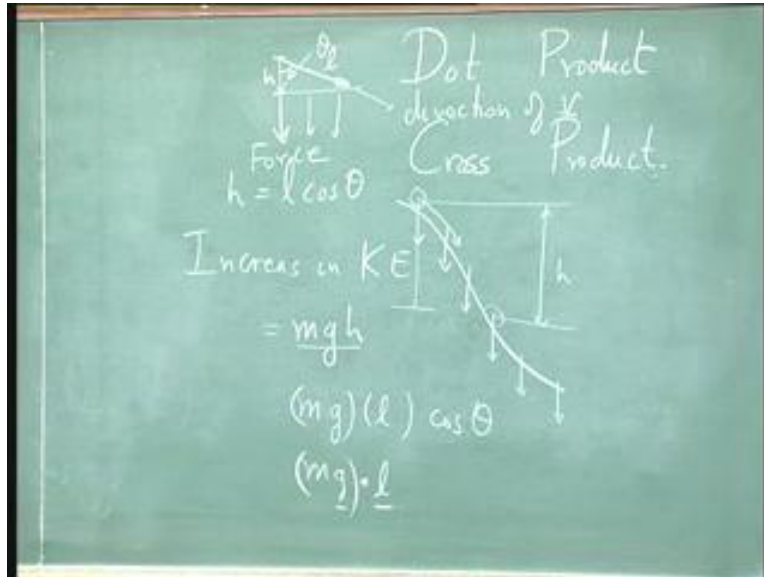 θ
l
h
Dot Product
direction of v
Force
Cross Product.
h = l cos θ
h
Increas in KE
= mgh
(mg)(l) cos θ
(mg)·l